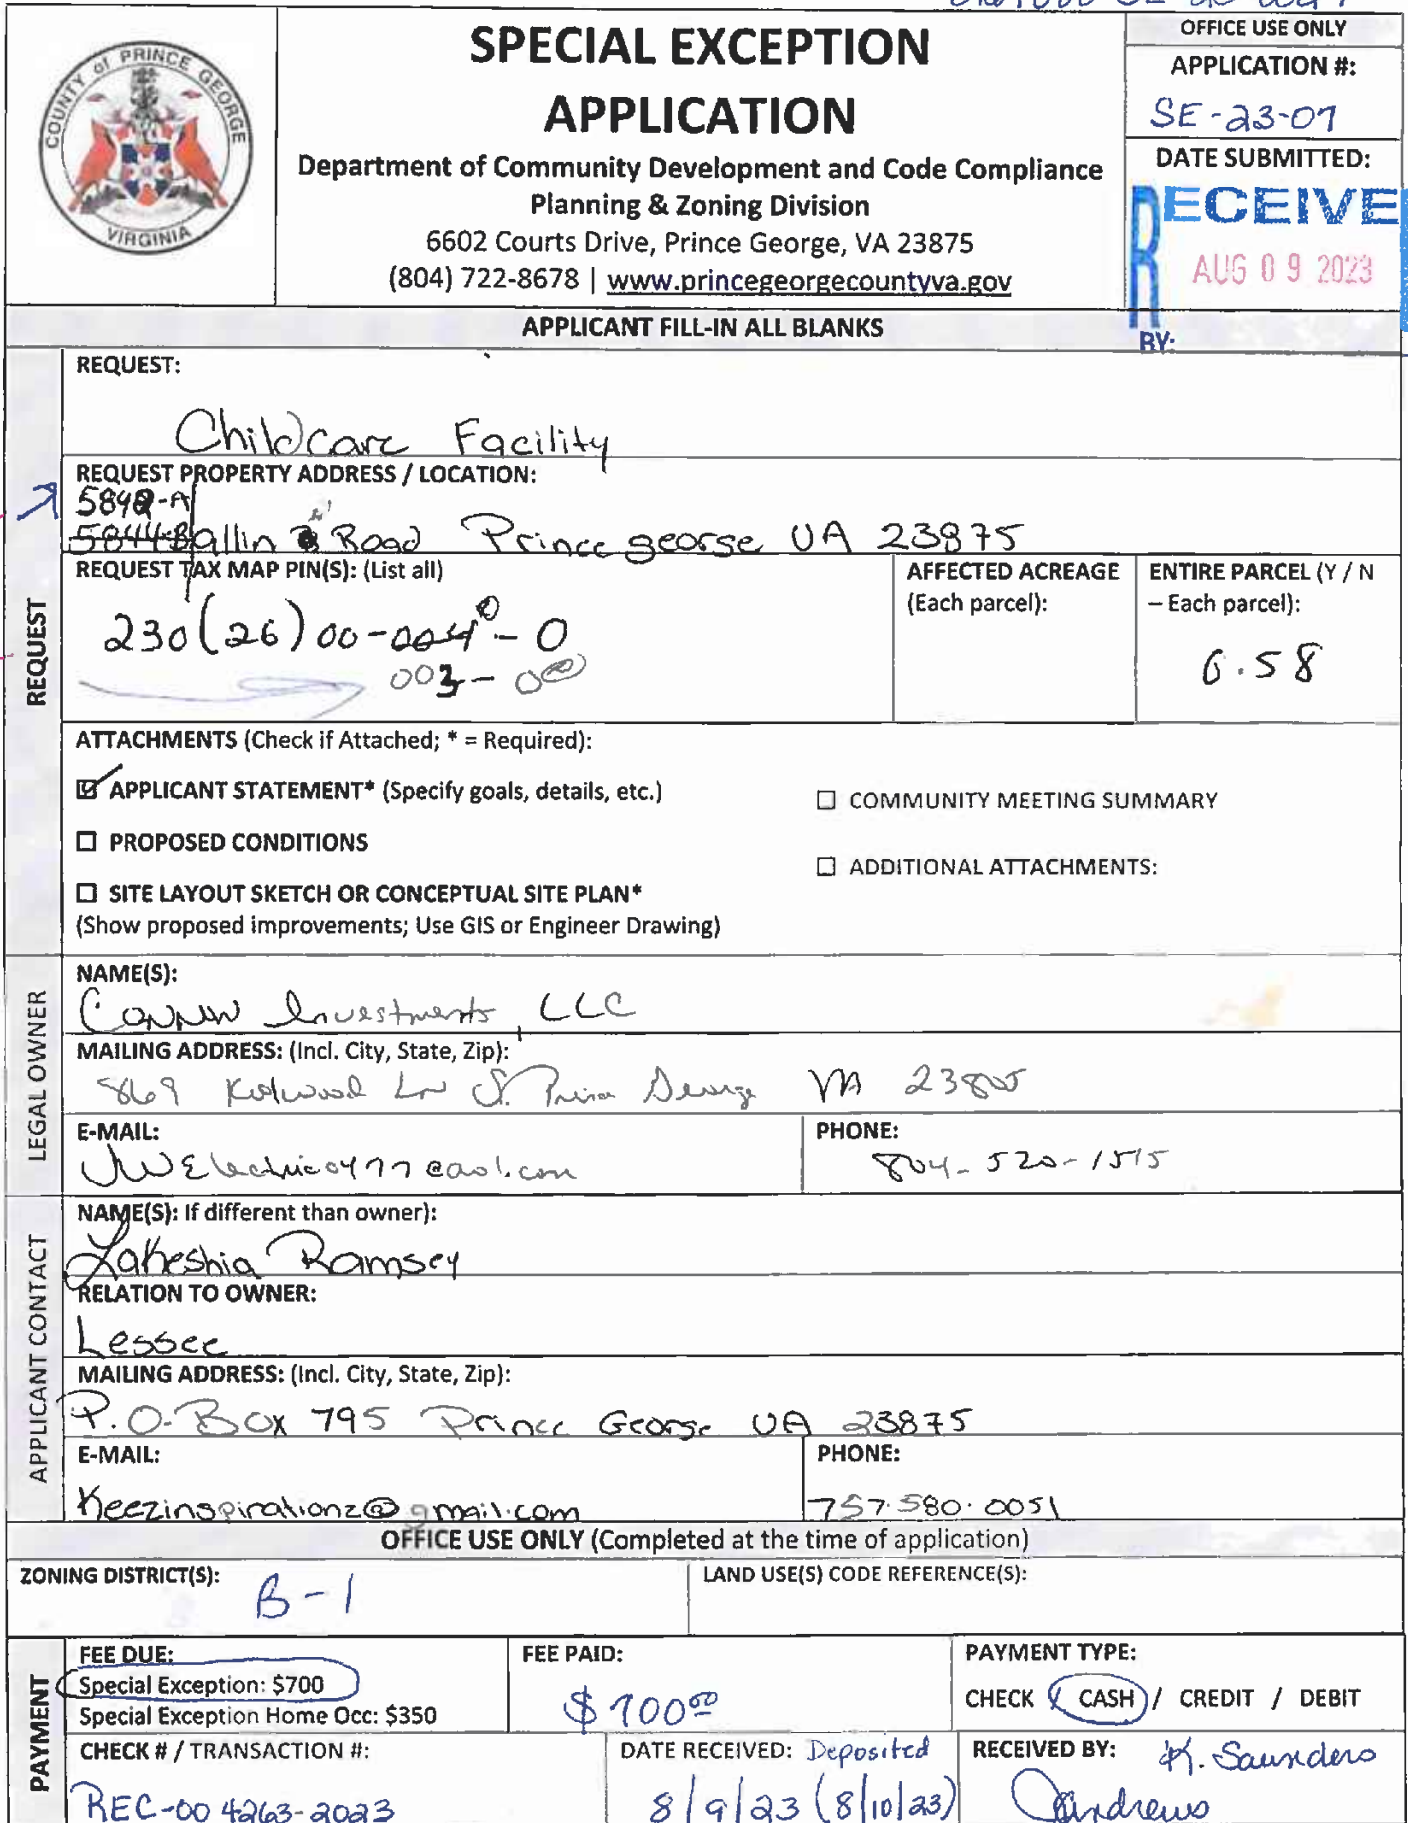 COUNTY of PRINCE GEORGE
VIRGINIA
SPECIAL EXCEPTION
APPLICATION
Department of Community Development and Code Compliance
Planning & Zoning Division
6602 Courts Drive, Prince George, VA 23875
(804) 722-8678 | www.princegeorgecountyva.gov
OFFICE USE ONLY
APPLICATION #:
SE-23-07
DATE SUBMITTED:
RECEIVE
AUG 09 2023
BY:
APPLICANT FILL-IN ALL BLANKS
REQUEST
REQUEST:
Childcare Facility
REQUEST PROPERTY ADDRESS / LOCATION:
5842-A
5844-B allin Road Prince george VA 23875
REQUEST TAX MAP PIN(S): (List all)
230(26)00-004-0
003-0
AFFECTED ACREAGE
(Each parcel):
ENTIRE PARCEL (Y / N
– Each parcel):
6.58
ATTACHMENTS (Check if Attached; * = Required):
☑ APPLICANT STATEMENT* (Specify goals, details, etc.)
☐ PROPOSED CONDITIONS
☐ SITE LAYOUT SKETCH OR CONCEPTUAL SITE PLAN*
(Show proposed improvements; Use GIS or Engineer Drawing)
☐ COMMUNITY MEETING SUMMARY
☐ ADDITIONAL ATTACHMENTS:
LEGAL OWNER
NAME(S):
Investments, LLC
MAILING ADDRESS: (Incl. City, State, Zip):
8669 Ln S. Prince George VA 23805
E-MAIL:
JWElectric0477@aol.com
PHONE:
804-520-1515
APPLICANT CONTACT
NAME(S): If different than owner):
Lakeshia Ramsey
RELATION TO OWNER:
Lessee
MAILING ADDRESS: (Incl. City, State, Zip):
P.O. Box 795 Prince George VA 23875
E-MAIL:
Keezinspirationz@gmail.com
PHONE:
757.580.0051
OFFICE USE ONLY (Completed at the time of application)
ZONING DISTRICT(S):
B-1
LAND USE(S) CODE REFERENCE(S):
PAYMENT
FEE DUE:
Special Exception: $700
Special Exception Home Occ: $350
FEE PAID:
$700.00
PAYMENT TYPE:
CHECK / CASH / CREDIT / DEBIT
CHECK # / TRANSACTION #:
REC-004263-2023
DATE RECEIVED: Deposited
8/9/23 (8/10/23)
RECEIVED BY: K. Saunders
Jandrews